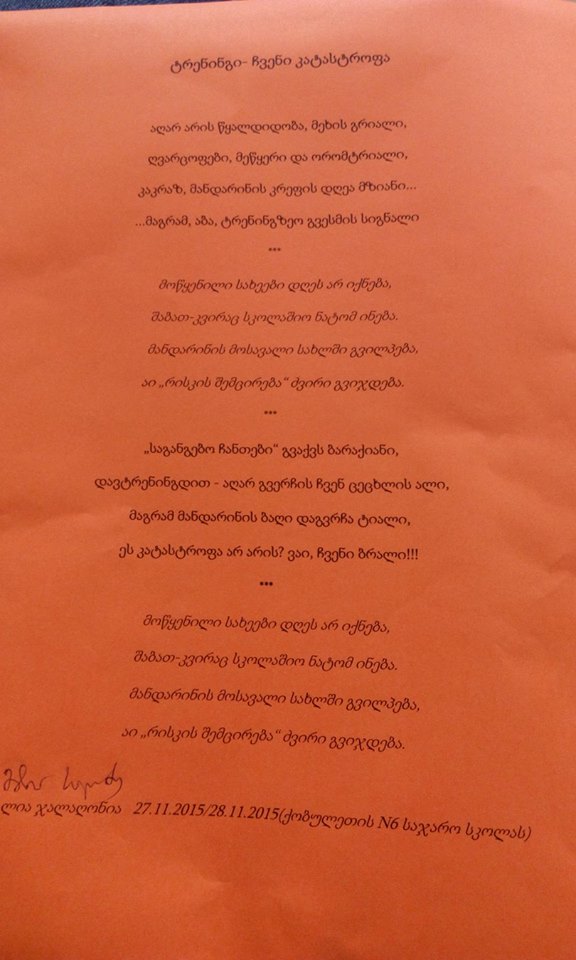 ტრენინგი- ჩვენი კატასტროფა
აღარ არის წყალდიდობა, მეხის გრიალი,
ღვარცოფები, მეწყერი და ორომტრიალი,
კაკრაზ, მანდარინის კრეფის დღეა მზიანი...
...მაგრამ, აბა, ტრენინგზეო გვესმის სიგნალი
***
მოწყენილი სახეები დღეს არ იქნება,
შაბათ-კვირაც სკოლაშიო ნატომ ინება.
მანდარინის მოსავალი სახლში გვილპება,
აი „რისკის შემცირება“ ძვირი გვიჯდება.
***
„საგანგებო ჩანთები“ გვაქვს ბარაქიანი,
დავტრენინგდით - აღარ გვერჩის ჩვენ ცეცხლის ალი,
მაგრამ მანდარინის ბაღი დაგვრჩა ტიალი,
ეს კატასტროფა არ არის? ვაი, ჩვენი ბრალი!!!
***
მოწყენილი სახეები დღეს არ იქნება,
შაბათ-კვირაც სკოლაშიო ნატომ ინება.
მანდარინის მოსავალი სახლში გვილპება,
აი „რისკის შემცირება“ ძვირი გვიჯდება.
ლია ჯალაღონია 27.11.2015/28.11.2015(ქობულეთის N6 საჯარო სკოლას)